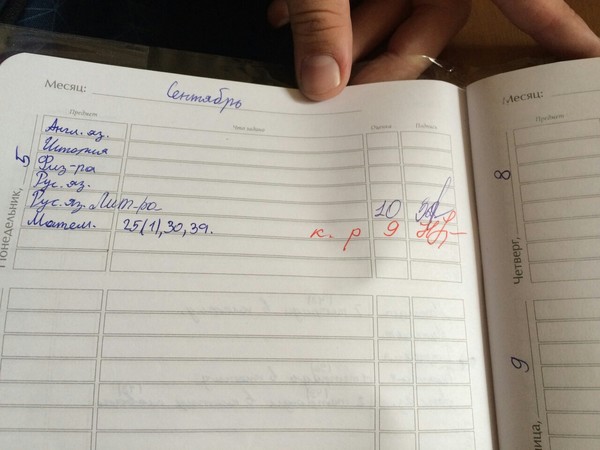 Месяц: Сентябрь
Предмет Что задано Оценка Подпись
Англ. яз.
История
Физ-ра
Рус. яз.
Рус. яз. Лит-ра 10
Матем. 25(1), 30, 39. к. р 9
Понедельник, 5
Месяц:
Предмет
Четверг, 8
9